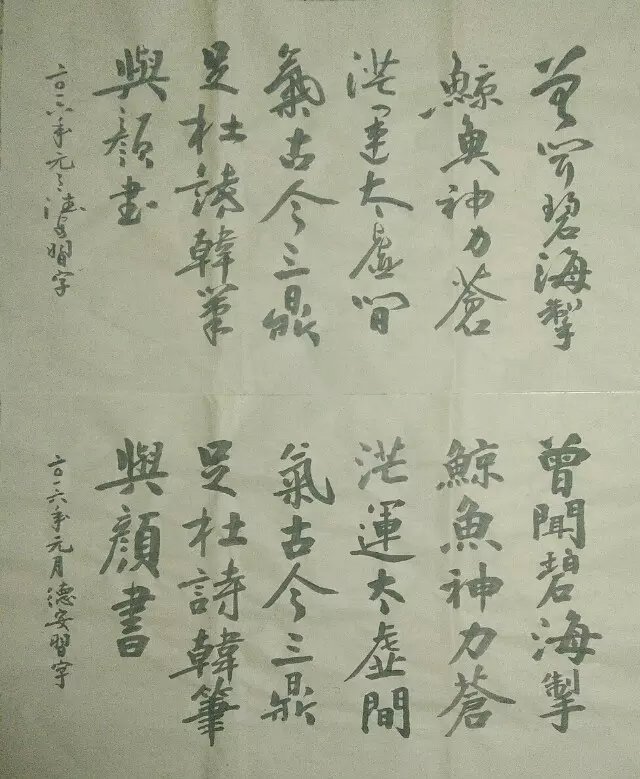 曾聞碧海掣
鯨魚神力蒼
茫運太虛間
氣古今三鼎
足杜詩韓筆
與顏書
二〇一六年元月德安習字
曾聞碧海掣
鯨魚神力蒼
茫運太虛間
氣古今三鼎
足杜詩韓筆
與顏書
二〇一六年元月德安習字